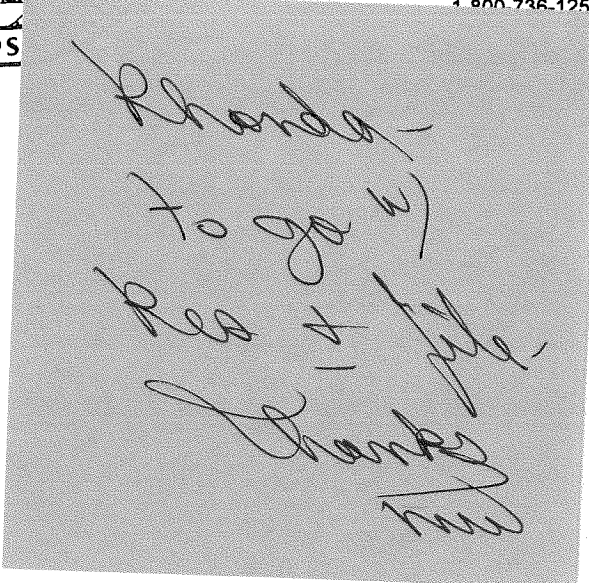 1-800-736-125
PS
Rhonda -
To go w/
Res + file -
Thanks